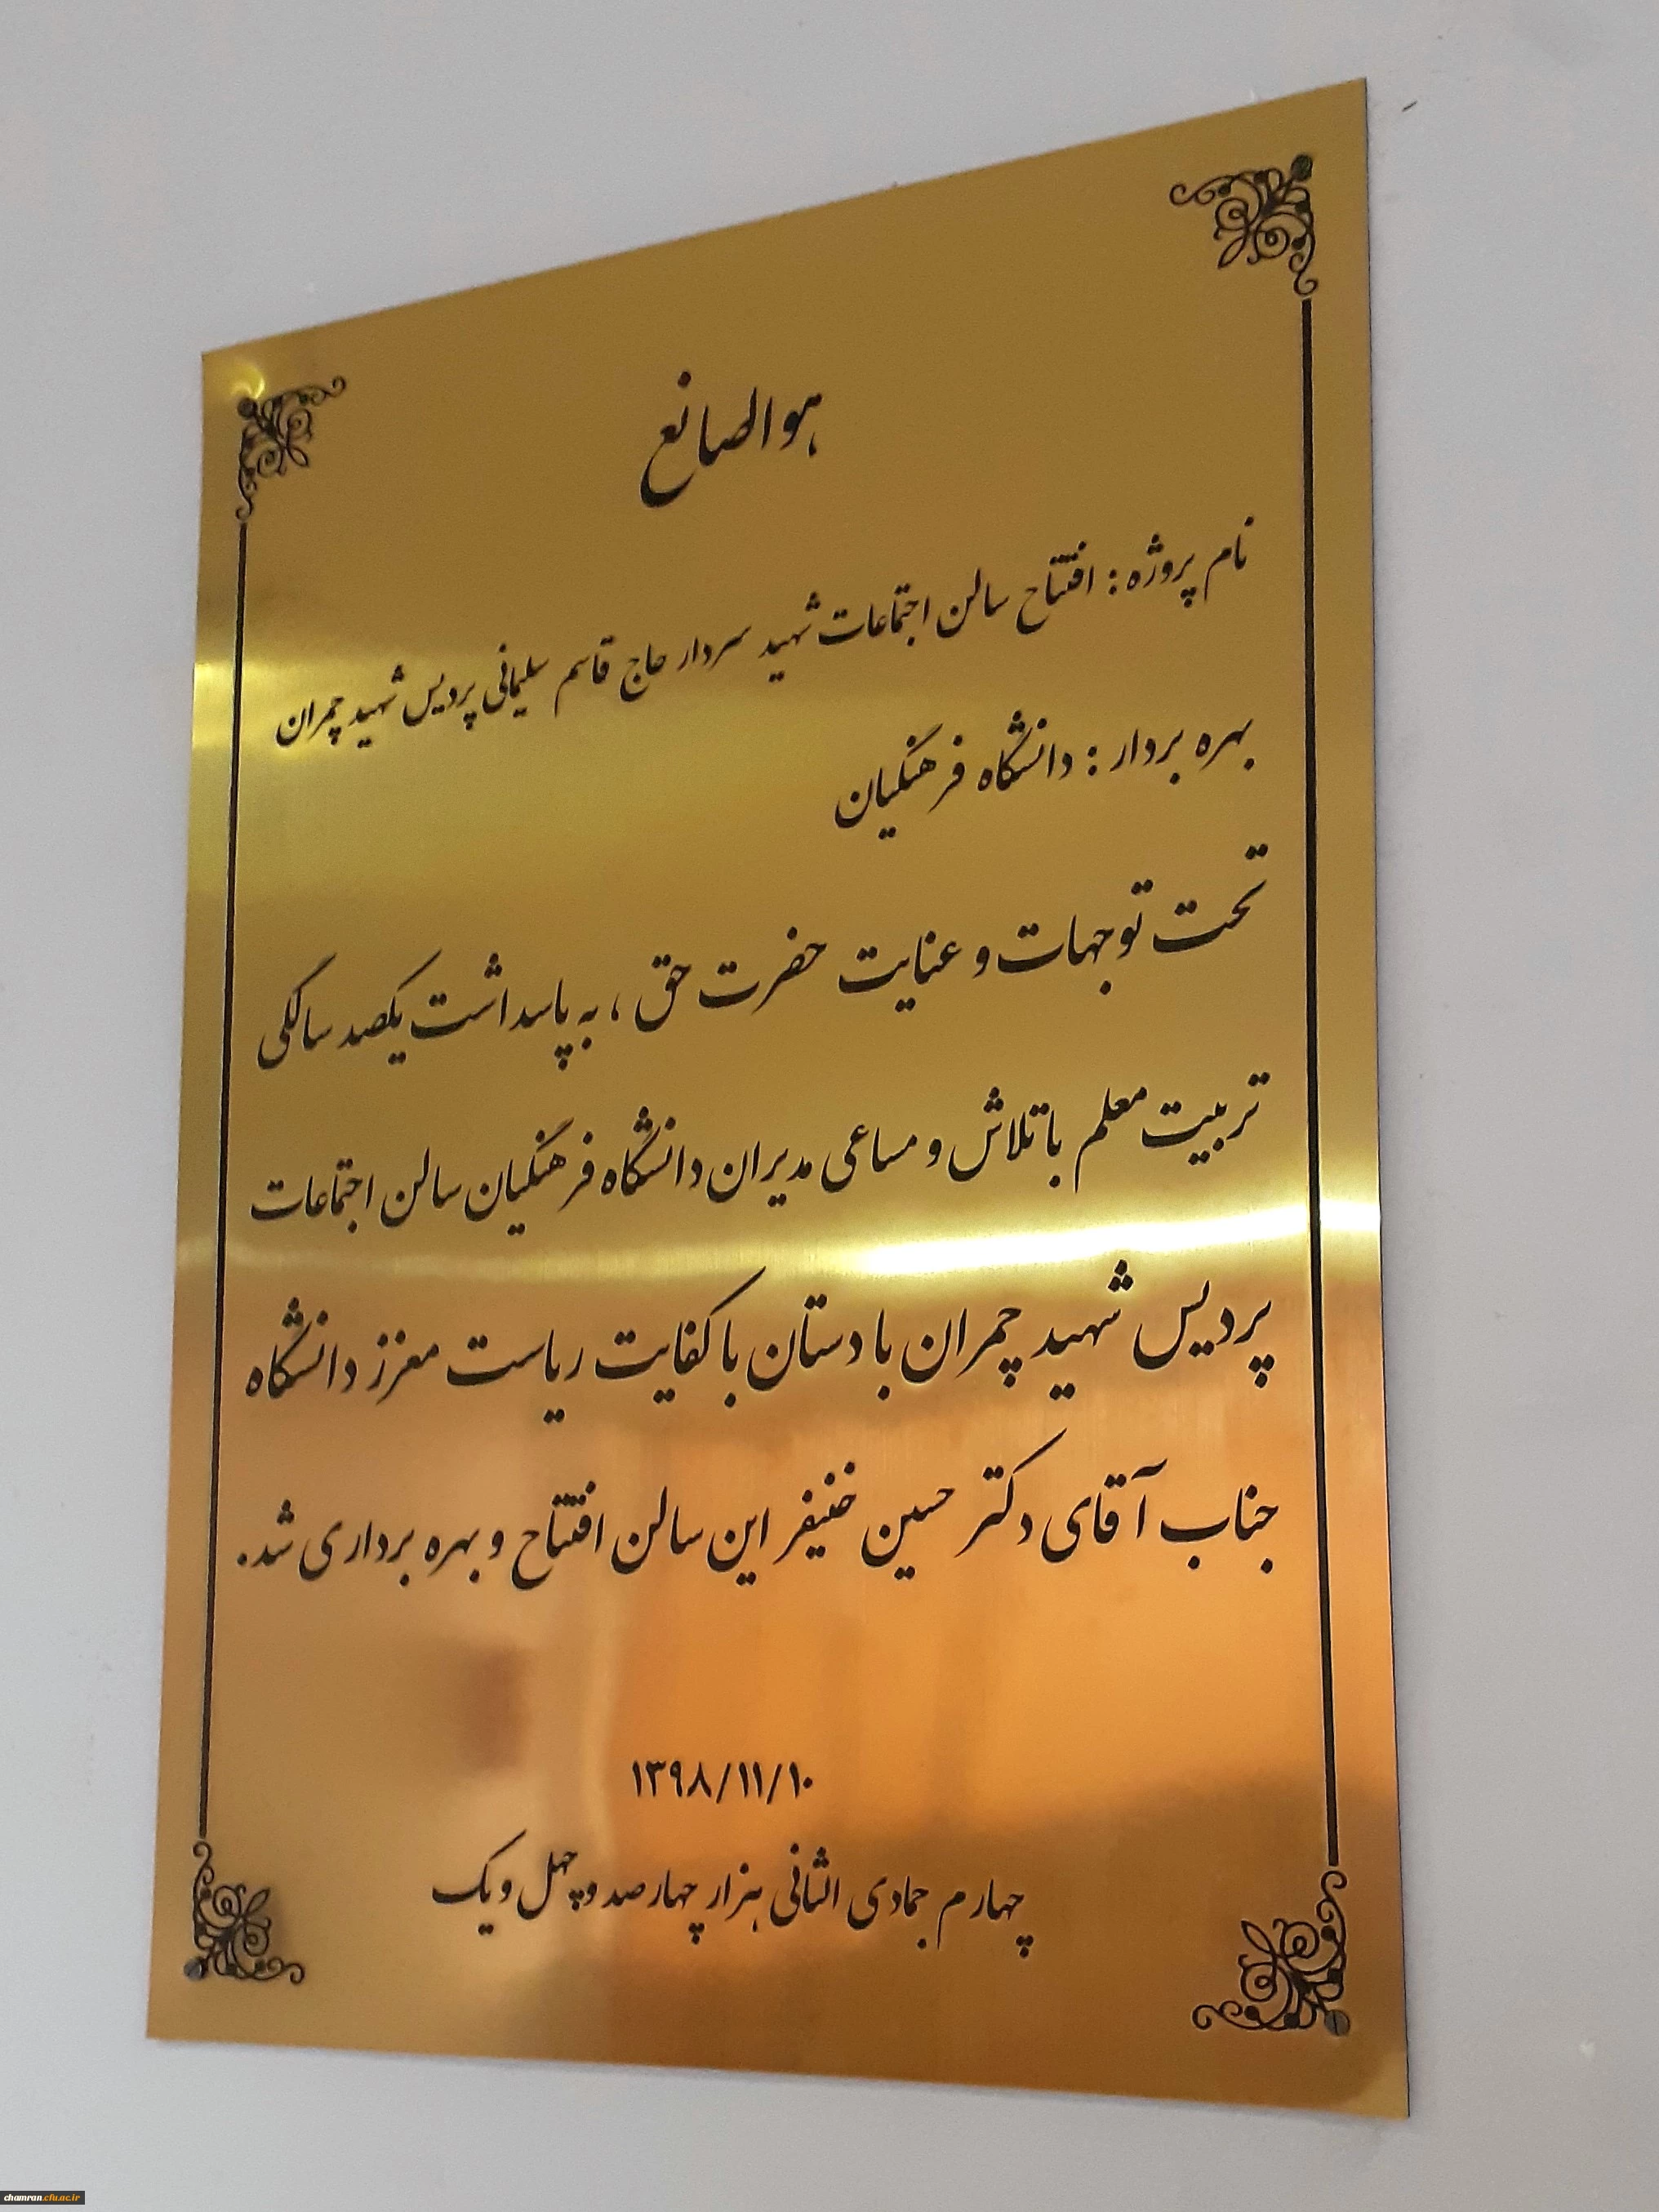 هوالصانع
نام پروژه : افتتاح سالن اجتماعات شهید سردار حاج قاسم سلیمانی پردیس شهید چمران
بهره بردار : دانشگاه فرهنگیان
تحت توجهات و عنایت حضرت حق ، به پاسداشت یکصد سالگی
تربیت معلم با تلاش و مساعی مدیران دانشگاه فرهنگیان سالن اجتماعات
پردیس شهید چمران با دستان با کفایت ریاست معزز دانشگاه
جناب آقای دکتر حسین خنیفر این سالن افتتاح و بهره برداری شد.
۱۳۹۸/۱۱/۱۰
چهارم جمادی الثانی هزار چهارصد و چهل و یک
chamran.cfu.ac.ir